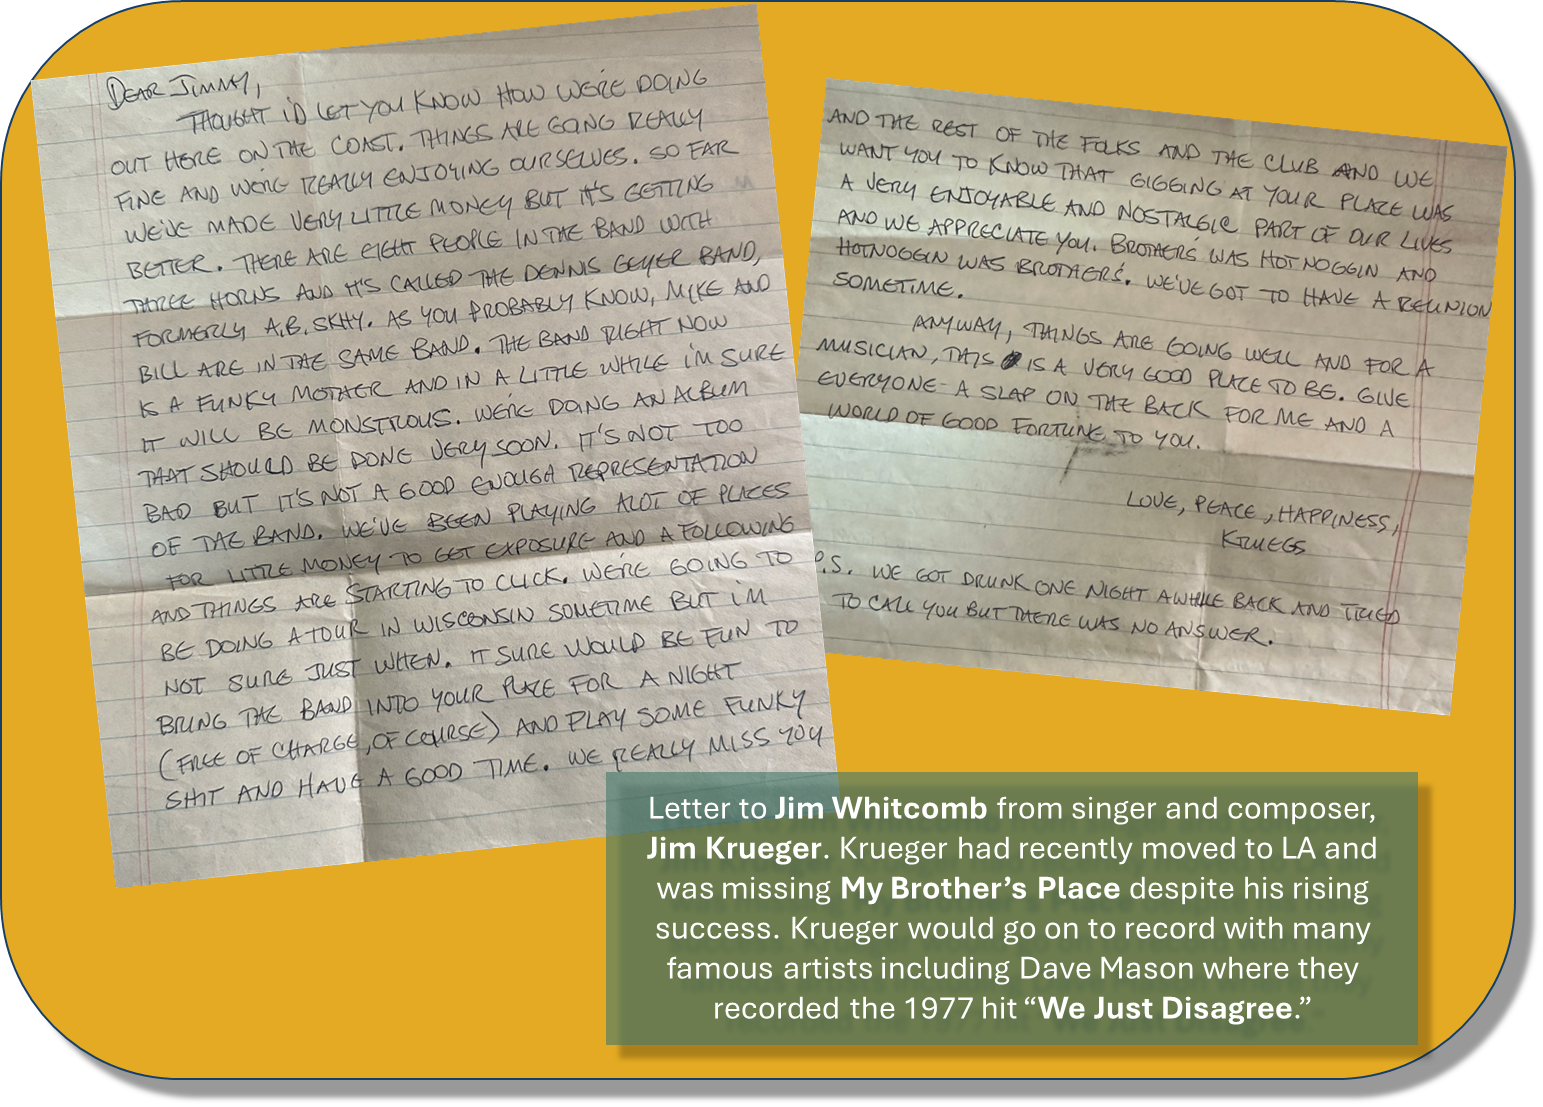 DEAR JIMMY,
THOUGHT I'D LET YOU KNOW HOW WE'RE DOING
OUT HERE ON THE COAST. THINGS ARE GOING REALLY
FINE AND WE'RE REALLY ENJOYING OURSELVES. SO FAR
WE'VE MADE VERY LITTLE MONEY BUT IT'S GETTING
BETTER. THERE ARE EIGHT PEOPLE IN THE BAND WITH
THREE HORNS AND IT'S CALLED THE DENNIS GEYER BAND,
FORMERLY, A.B. SKHY. AS YOU PROBABLY KNOW, MIKE AND
BILL ARE IN THE SAME BAND. THE BAND RIGHT NOW
IS A FUNKY MOTHER AND IN A LITTLE WHILE I'M SURE
IT WILL BE MONSTROUS. WE'RE DOING AN ALBUM
THAT SHOULD BE DONE VERY SOON. IT'S NOT TOO
BAD BUT IT'S NOT A GOOD ENOUGH REPRESENTATION
OF THE BAND. WE'VE BEEN PLAYING ALOT OF PLACES
FOR LITTLE MONEY TO GET EXPOSURE AND A FOLLOWING
AND THINGS ARE STARTING TO CLICK. WE'RE GOING TO
BE DOING A TOUR IN WISCONSIN SOMETIME BUT I'M
NOT SURE JUST WHEN. IT SURE WOULD BE FUN TO
BRING THE BAND INTO YOUR PLACE FOR A NIGHT
(FREE OF CHARGE, OF COURSE) AND PLAY SOME FUNKY
SHIT AND HAVE A GOOD TIME. WE REALLY MISS YOU
AND THE REST OF THE FOLKS AND THE CLUB AND WE
WANT YOU TO KNOW THAT GIGGING AT YOUR PLACE WAS
A VERY ENJOYABLE AND NOSTALGIC PART OF OUR LIVES
AND WE APPRECIATE YOU. BROTHER'S WAS HOTNOGGIN AND
HOTNOGGIN WAS BROTHER'S. WE'VE GOT TO HAVE A REUNION
SOMETIME.
ANYWAY, THINGS ARE GOING WELL AND FOR A
MUSICIAN, THIS IS A VERY GOOD PLACE TO BE. GIVE
EVERYONE A SLAP ON THE BACK FOR ME AND A
WORLD OF GOOD FORTUNE TO YOU.
LOVE, PEACE, HAPPINESS,
KRUEGS
P.S. WE GOT DRUNK ONE NIGHT AWHILE BACK AND TRIED
TO CALL YOU BUT THERE WAS NO ANSWER.
Letter to Jim Whitcomb from singer and composer,
Jim Krueger. Krueger had recently moved to LA and
was missing My Brother's Place despite his rising
success. Krueger would go on to record with many
famous artists including Dave Mason where they
recorded the 1977 hit "We Just Disagree."